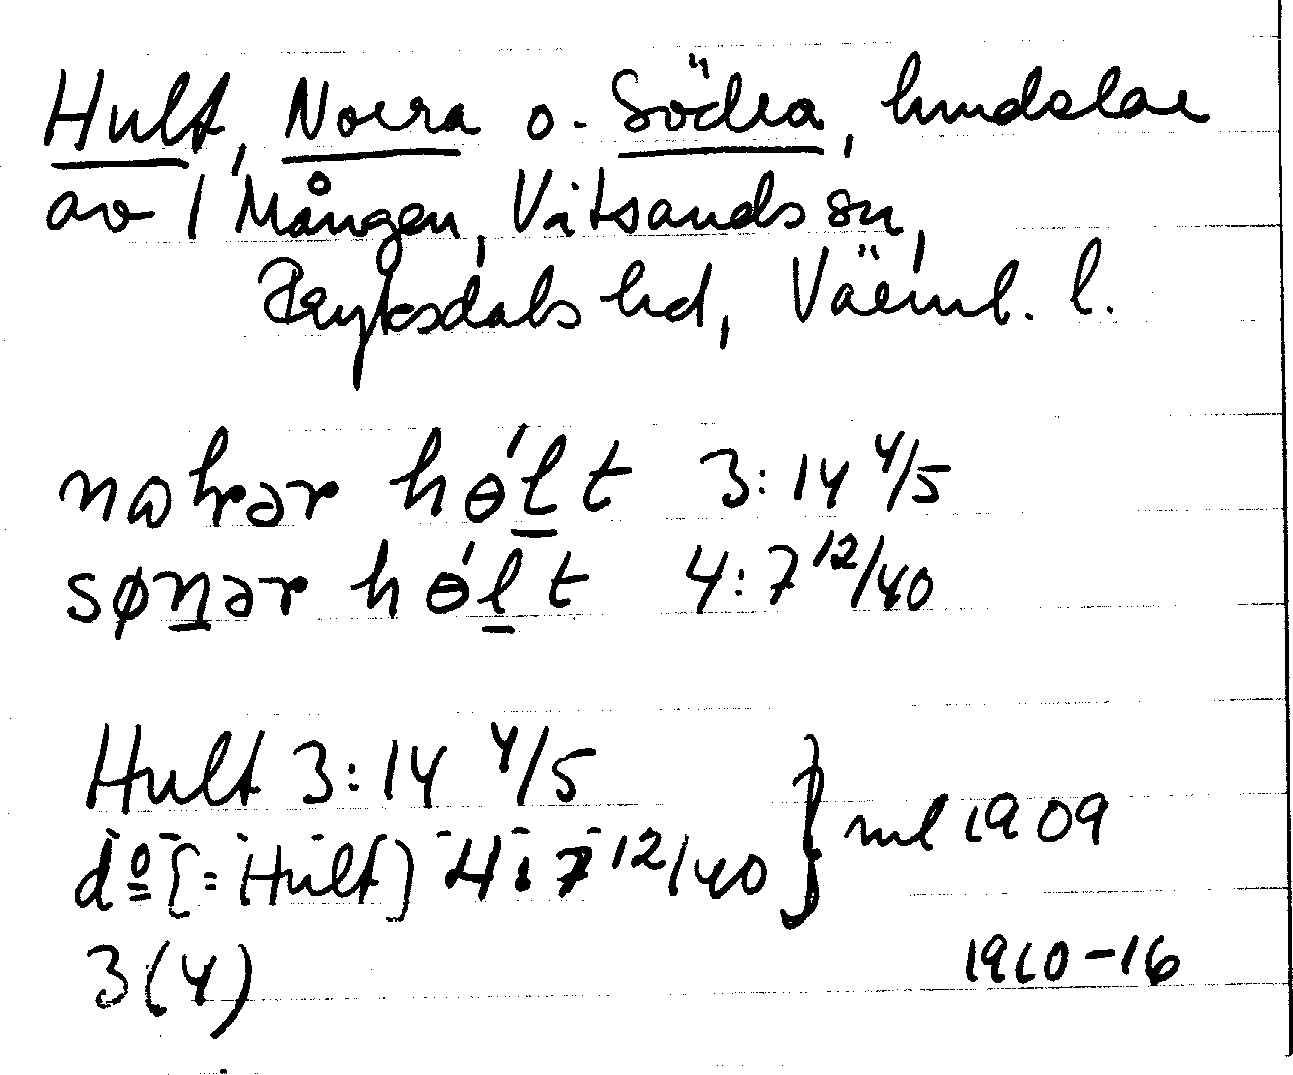 Hult, Norra o. Södra, hmdelar
av 1 Mången, Vitsands sn,
Fryksdals hd, Värml. l.
nɷhrər hɵ́l̲t 3:14 4/5
søn̲ər hɵ́l̲t 4:7 12/40
Hult 3:14 4/5
dº [= Hult] 4:7 12/40 } ml 1909
3(4) 1910-16